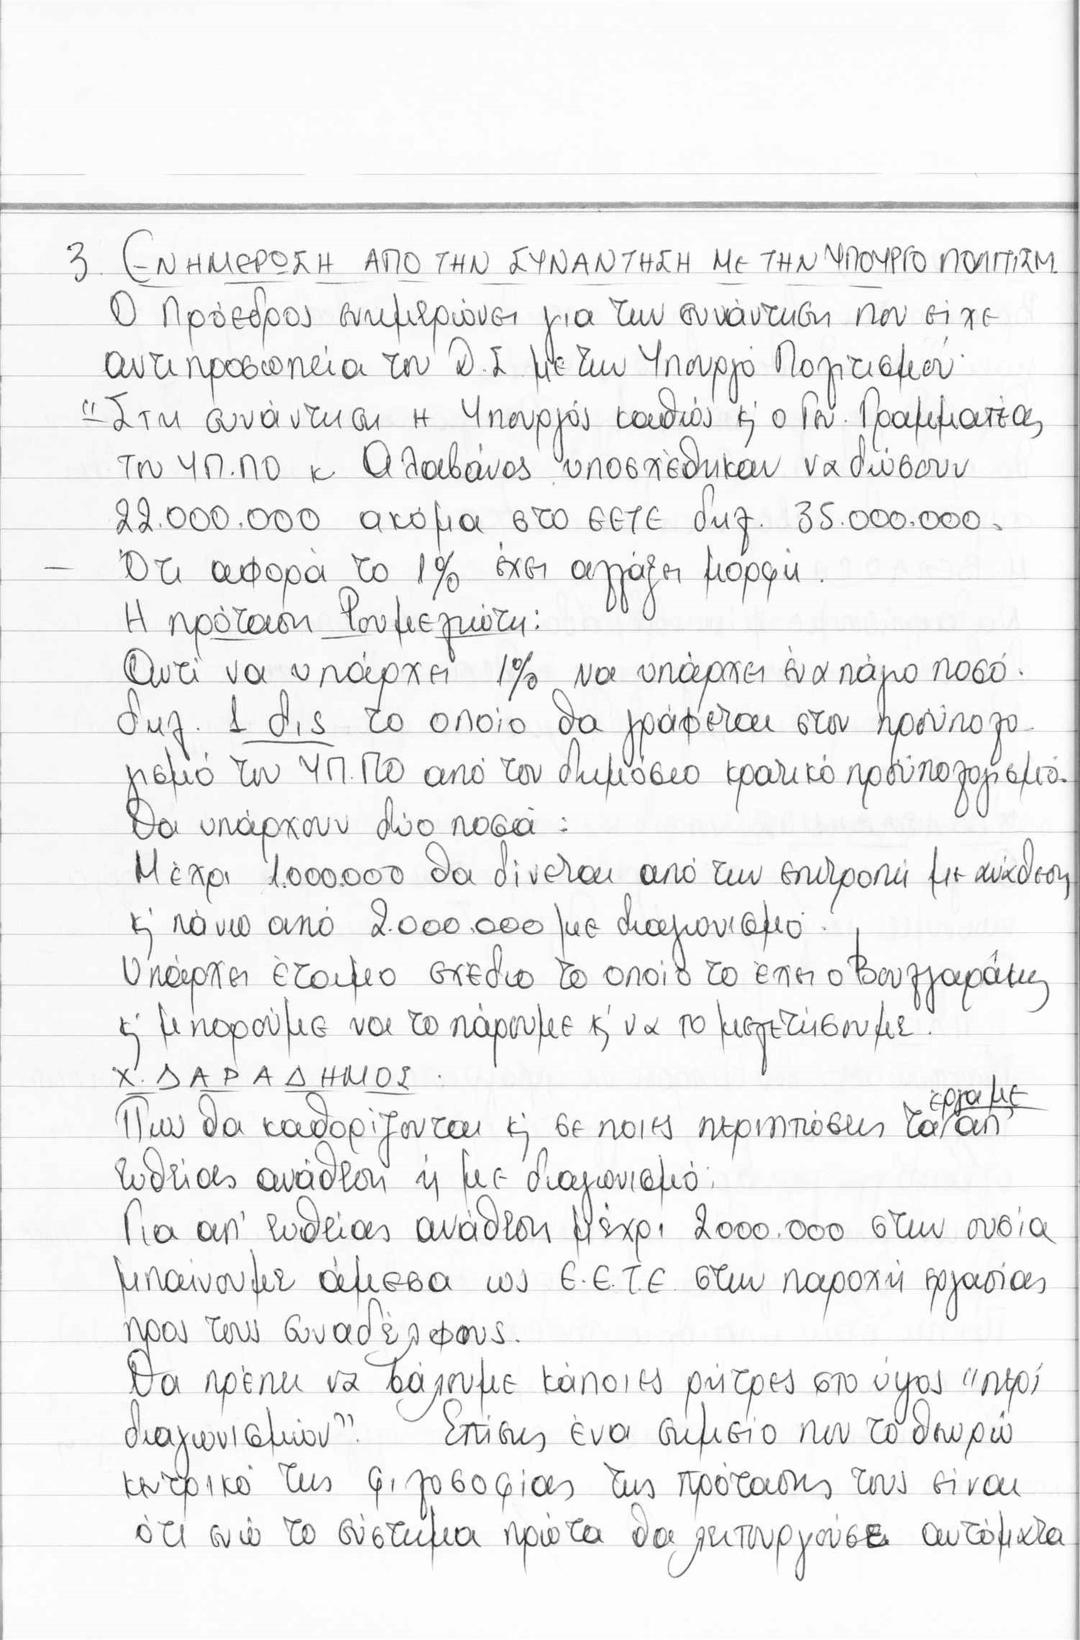 3. ΕΝΗΜΕΡΩΣΗ ΑΠΟ ΤΗΝ ΣΥΝΑΝΤΗΣΗ ΜΕ ΤΗΝ ΥΠΟΥΡΓΟ ΠΟΛΙΤΙΣΜ.
Ο Πρόεδρος ενημερώνει για την συνάντηση που είχε
αντιπροσωπεία του Δ.Σ. με την Υπουργό Πολιτισμού.
"Στη συνάντηση η Υπουργός καθώς κ' ο Γεν. Γραμματέας
του ΥΠ.ΠΟ κ Αλαβάνος υποσχέθηκαν να δώσουν
22.000.000 ακόμα στο ΕΕΤΕ δηλ. 35.000.000.
— Ότι αφορά το 1% έχει αλλάξει μορφή.
Η πρόταση Ρουμελιώτη:
Αντί να υπάρχει 1% να υπάρχει ένα πάγιο ποσό.
δηλ. 1 δις το οποίο θα γράφεται στον προϋπολο-
γισμό του ΥΠ.ΠΟ από τον δημόσιο κρατικό προϋπολογισμό.
Θα υπάρχουν δύο ποσά:
Μέχρι 1.000.000 θα δίνεται από την επιτροπή με ανάθεση
κ' πάνω από 2.000.000 με διαγωνισμό.
Υπάρχει έτοιμο σχέδιο το οποίο το έχει ο Βουλγαράκης
κ' μπορούμε να το πάρουμε κ' να το μελετήσουμε.
Χ. ΔΑΡΑΔΗΜΟΣ.
Πως θα καθορίζονται κ' σε ποιες περιπτώσεις τα έργα με απ'
ευθείας ανάθεση ή με διαγωνισμό;
Για απ' ευθείας ανάθεση μέχρι 2000.000 στην ουσία
μπαίνουμε άμεσα ως Ε.Ε.Τ.Ε στην παροχή εργασίας
προς τους συναδέλφους.
Θα πρέπει να βάλουμε κάποιες ρήτρες στο ύψος "περί
διαγωνισμών". Επίσης ένα σημείο που το θεωρώ
κεντρικό της φιλοσοφίας της πρότασης τους είναι
ότι ενώ το σύστημα πρώτα θα λειτουργούσε αυτόματα